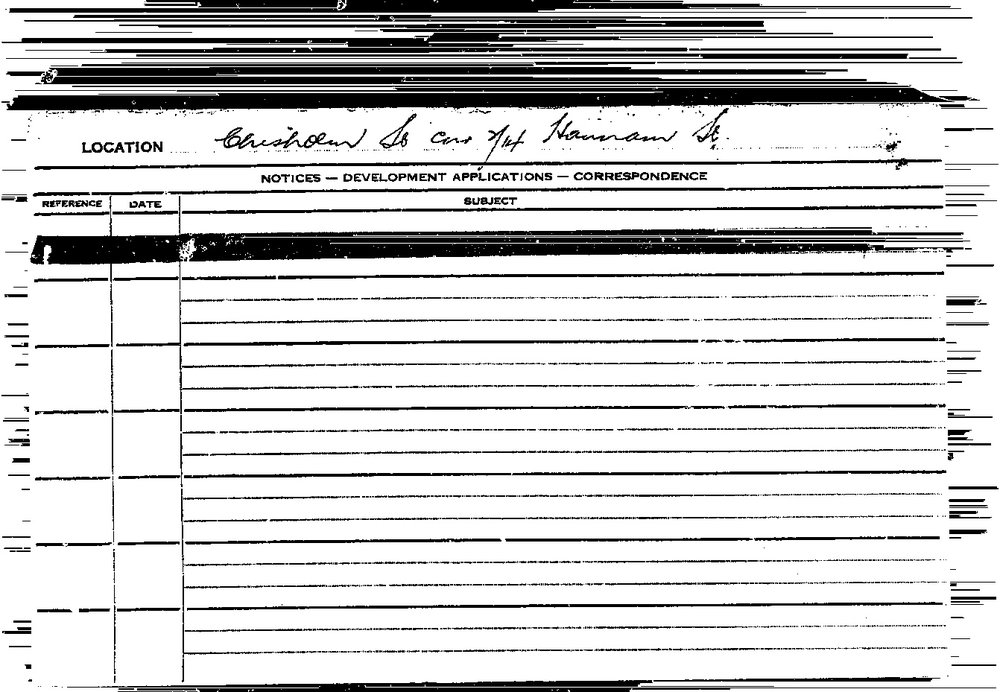 LOCATION Chisholm St cnr 2/14 Hannam St.
NOTICES — DEVELOPMENT APPLICATIONS — CORRESPONDENCE
REFERENCE DATE SUBJECT